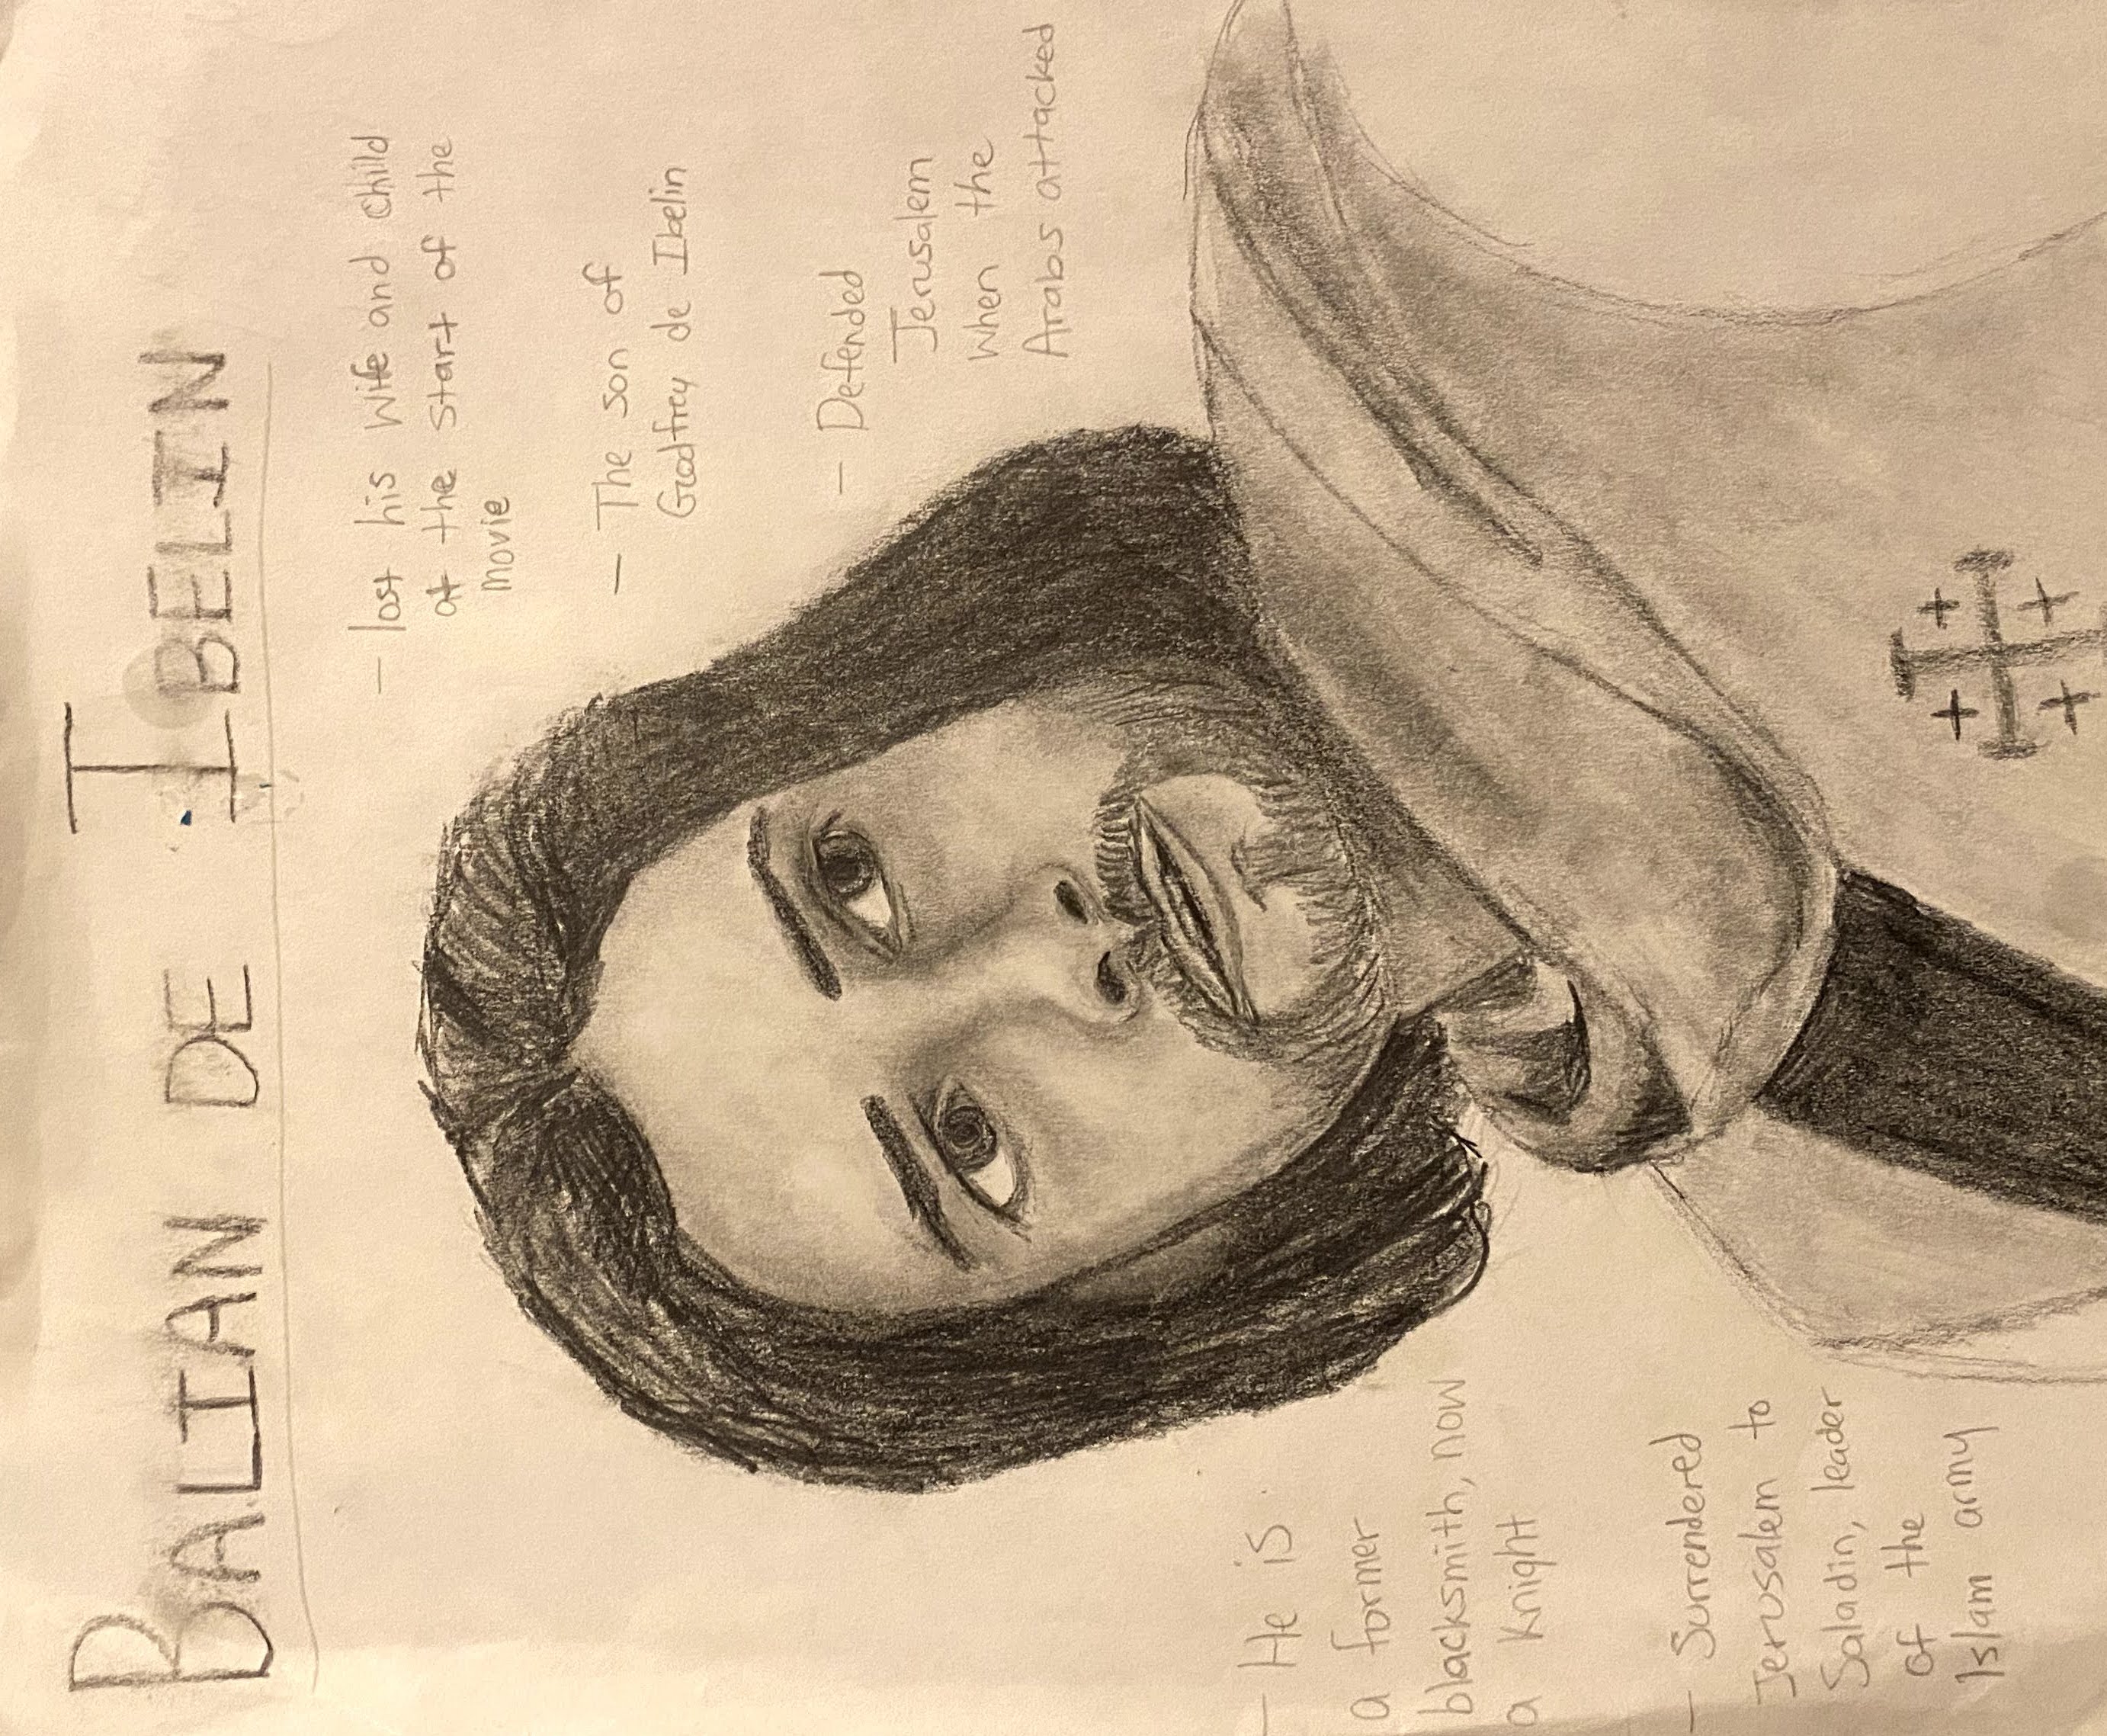 BALIAN DE IBELIN
- lost his wife and child
at the start of the
movie
- The son of
Godfrey de Ibelin
- Defended
Jerusalem
when the
Arabs attacked
- He is
a former
blacksmith, now
a Knight
- Surrendered
Jerusalem to
Saladin, leader
of the
Islam army